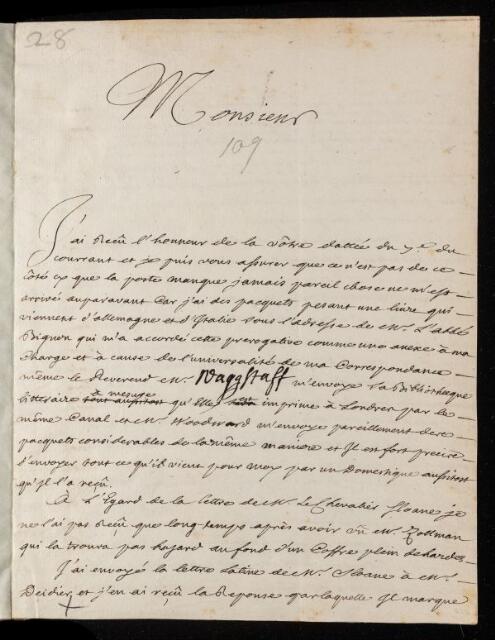 28
Monsieur
109
J'ai reçü l'honneur de la vôtre dattée du 7.e du
courrant et je puis vous assurer que ce n'est pas de ce
côté cy que la poste manque jamais pareil chose ne m'est
arrivé auparavant Car j'ai des pacquets pesant une livre qui
viennent d'allemagne et d'Italie sous l'adresse de M. L'abbé
Bignon qui m'a accordé cette prerogative comme une anexe à ma
charge et à cause de l'universalité de ma Correspondance
même le Reverend M. Waggstaff m'envoye sa Bibliotheque
litteraire à mesure tout aussitost qu'elle imprime à Londres par le
même Canal et M. Woodward m'envoye pareillement des
pacquets considerables de la même maniere et Il est fort precis
d'envoyer tout ce qu'il vient pour moy par un Domestique aussitost
qu'il l'a reçu.
A l'Egard de la lettre de M. Le Chevalier Sloane je
ne l'ai pas reçü que long temps après avoir vü M. Zollman
qui la trouva par hazard au fond d'un Coffre plein de hardes
J'ai envoyé la lettre latine de M. Sloane à M.
Deidier et j'en ai reçü la Reponse par laquelle Il marque